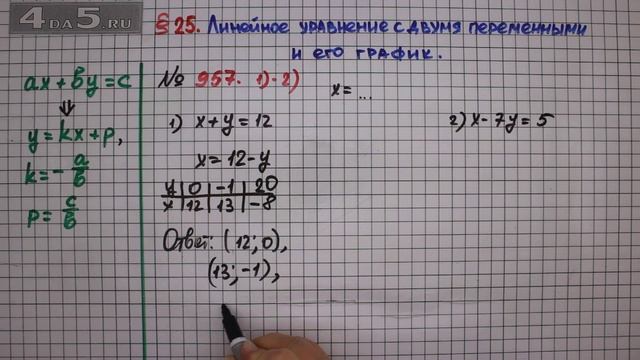 4DA5.RU
§ 25. Линейное уравнение с двумя переменными
и его график.
ax + by = c
⇓
y = kx + p,
k = - a/b
p = c/b
№ 957. 1)-2)
x = ...
1) x + y = 12
x = 12 - y
y | 0 | -1 | 20
x | 12 | 13 | -8
Ответ: (12; 0),
(13; -1),
2) x - 7y = 5